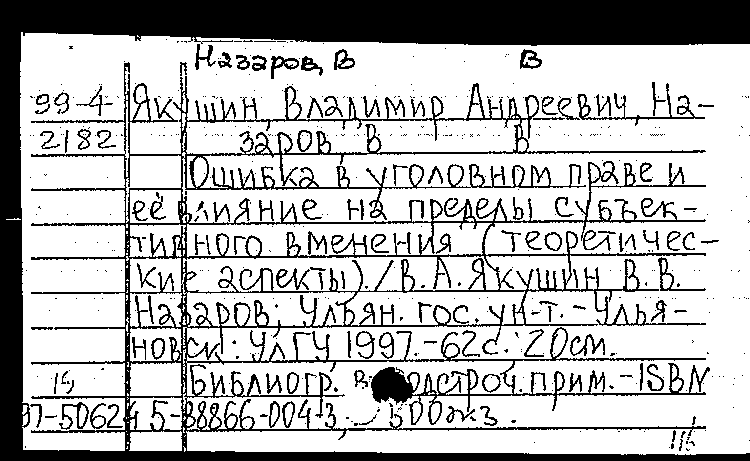 Назаров, В В
99-4- Якушин, Владимир Андреевич, На-
2182 заров В В
Ошибка в уголовном праве и
её влияние на пределы субъек-
тивного вменения (теоретичес-
кие аспекты). / В.А.Якушин, В.В.
Назаров; Ульян. гос. ун-т. - Улья-
новск: УлГУ, 1997. - 62с.; 20см.
Библиогр. в подстроч. прим. - ISBN
97-50624 5-88866-004-3, 500экз.
116